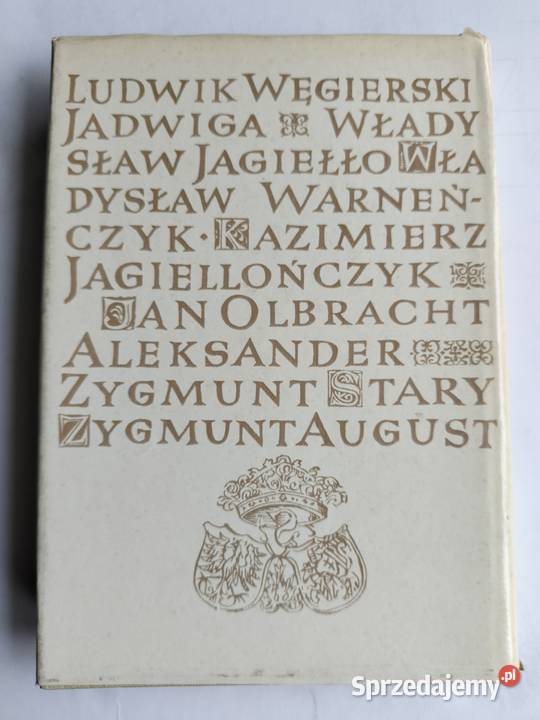 LUDWIK WĘGIERSKI
JADWIGA WŁADY
SŁAW JAGIEŁŁO WŁA
DYSŁAW WARNEŃ-
CZYK · KAZIMIERZ
JAGIELLOŃCZYK
JAN OLBRACHT
ALEKSANDER
ZYGMUNT STARY
ZYGMUNT AUGUST
Sprzedajemy.pl